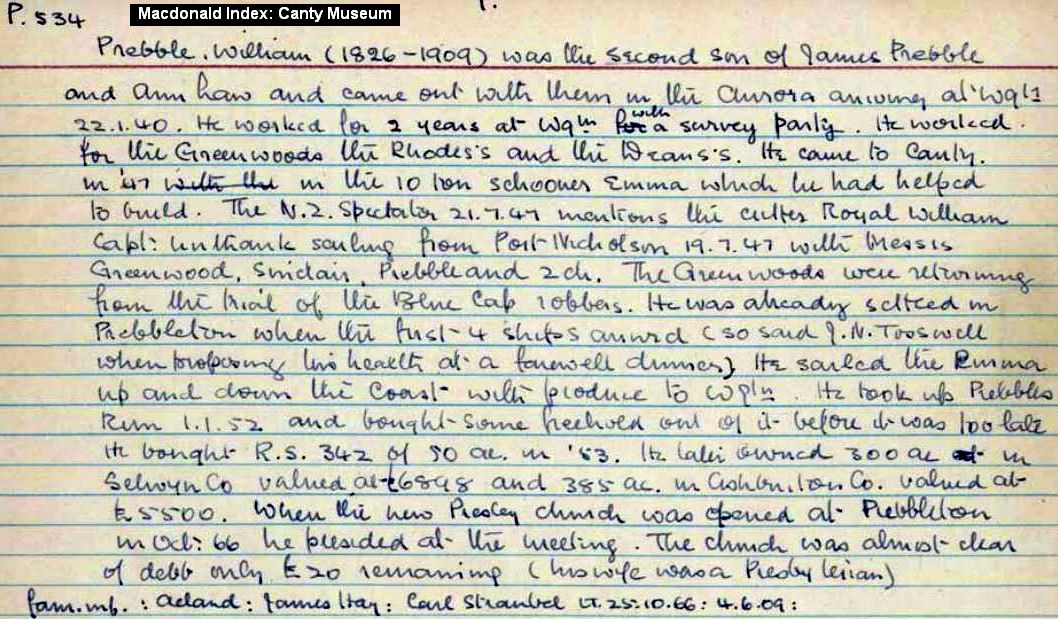 P. 534
Macdonald Index: Canty Museum
Prebble. William (1826-1909) was the second son of James Prebble
and Ann Law and came out with them in the Aurora arriving at Wgtn
22.1.40. He worked for 2 years at Wgtn for with a survey party. He worked
for the Greenwoods the Rhodes's and the Deans's. He came to Canty.
in '47 with the in the 10 ton schooner Emma which he had helped
to build. The N.Z. Spectator 21.7.47 mentions the cutter Royal William
Capt: Unthank sailing from Port Nicholson 19.7.47 with Messrs
Greenwood, Sinclair, Prebble and 2 ch. The Greenwoods were returning
from the trial of the Blue Cap robbers. He was already settled in
Prebbleton when the first 4 ships arrived (so said J.N. Tosswill
when proposing his health at a farewell dinner) He sailed the Emma
up and down the Coast with produce to Wgtn. He took up Prebbles
Run 1.1.52 and bought some freehold out of it before it was too late
He bought R.S. 342 of 50 ac. in '53. He later owned 300 ac in
Selwyn Co valued at £6848 and 385 ac. in Ashburton Co. valued at
£5500. When the new Presby church was opened at Prebbleton
in Oct: 66 he presided at the meeting. The church was almost clear
of debt only £20 remaining (his wife was a Presbyterian)
fam. inf. : Acland : James Hay : Carl Straubel LT. 25.10.66 : 4.6.09 :